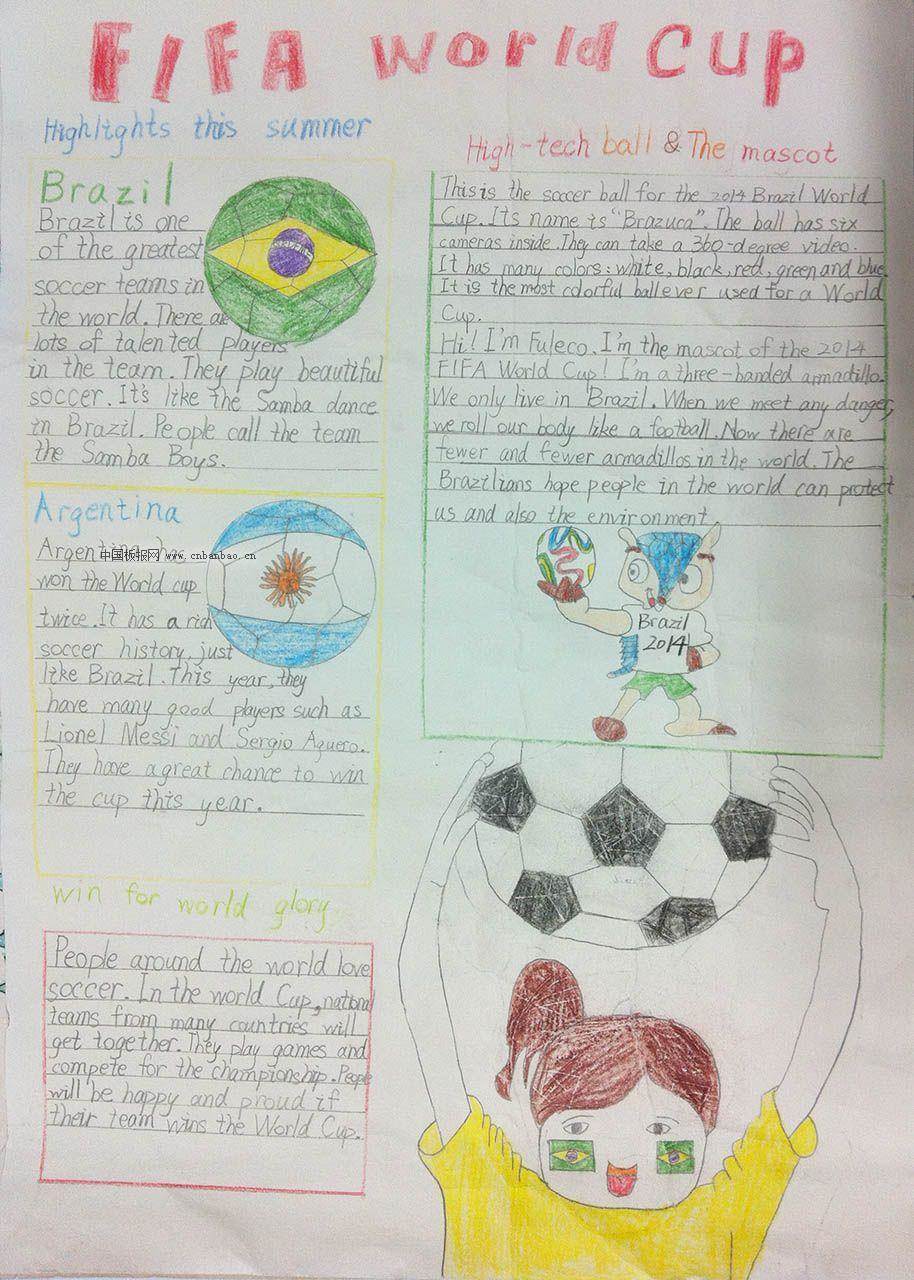 FIFA World Cup
Highlights this summer
Brazil
Brazil is one
of the greatest
soccer teams in
the world. There are
lots of talented players
in the team. They play beautiful
soccer. It's like the Samba dance
in Brazil. People call the team
the Samba Boys.
Argentina
Argentina has
中国板报网 www.cnbanbao.cn
won the World cup
twice. It has a rich
soccer history, just
like Brazil. This year, they
have many good players such as
Lionel Messi and Sergio Aguero.
They have a great chance to win
the cup this year.
win for world glory
People around the world love
soccer. In the world Cup, national
teams from many countries will
get together. They play games and
compete for the championship. People
will be happy and proud if
their team wins the World Cup.
High-tech ball & The mascot
This is the soccer ball for the 2014 Brazil World
Cup. Its name is "Brazuca". The ball has six
cameras inside. They can take a 360-degree video.
It has many colors: white, black, red, green and blue.
It is the most colorful ball ever used for a World
Cup.
Hi! I'm Fuleco. I'm the mascot of the 2014
FIFA World Cup! I'm a three-banded armadillo.
We only live in Brazil. When we meet any danger,
we roll our body like a football. Now there are
fewer and fewer armadillos in the world. The
Brazilians hope people in the world can protect
us and also the environment
Brazil
2014